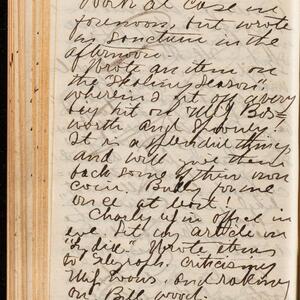 Work at case in
forenoon, but wrote
in sanctum in the
afternoon.
Wrote an item on
the "Stealing Season",
wherein I get off a very
big hit on
worth and Spooney!
It is a splendid thing
and will give them
back some of their own
coin. Bully for me
once at least!
Charley up in office in
eve. Set my article in
Wrote items
to Telegraph, criticising
and raking
on Bill wood.